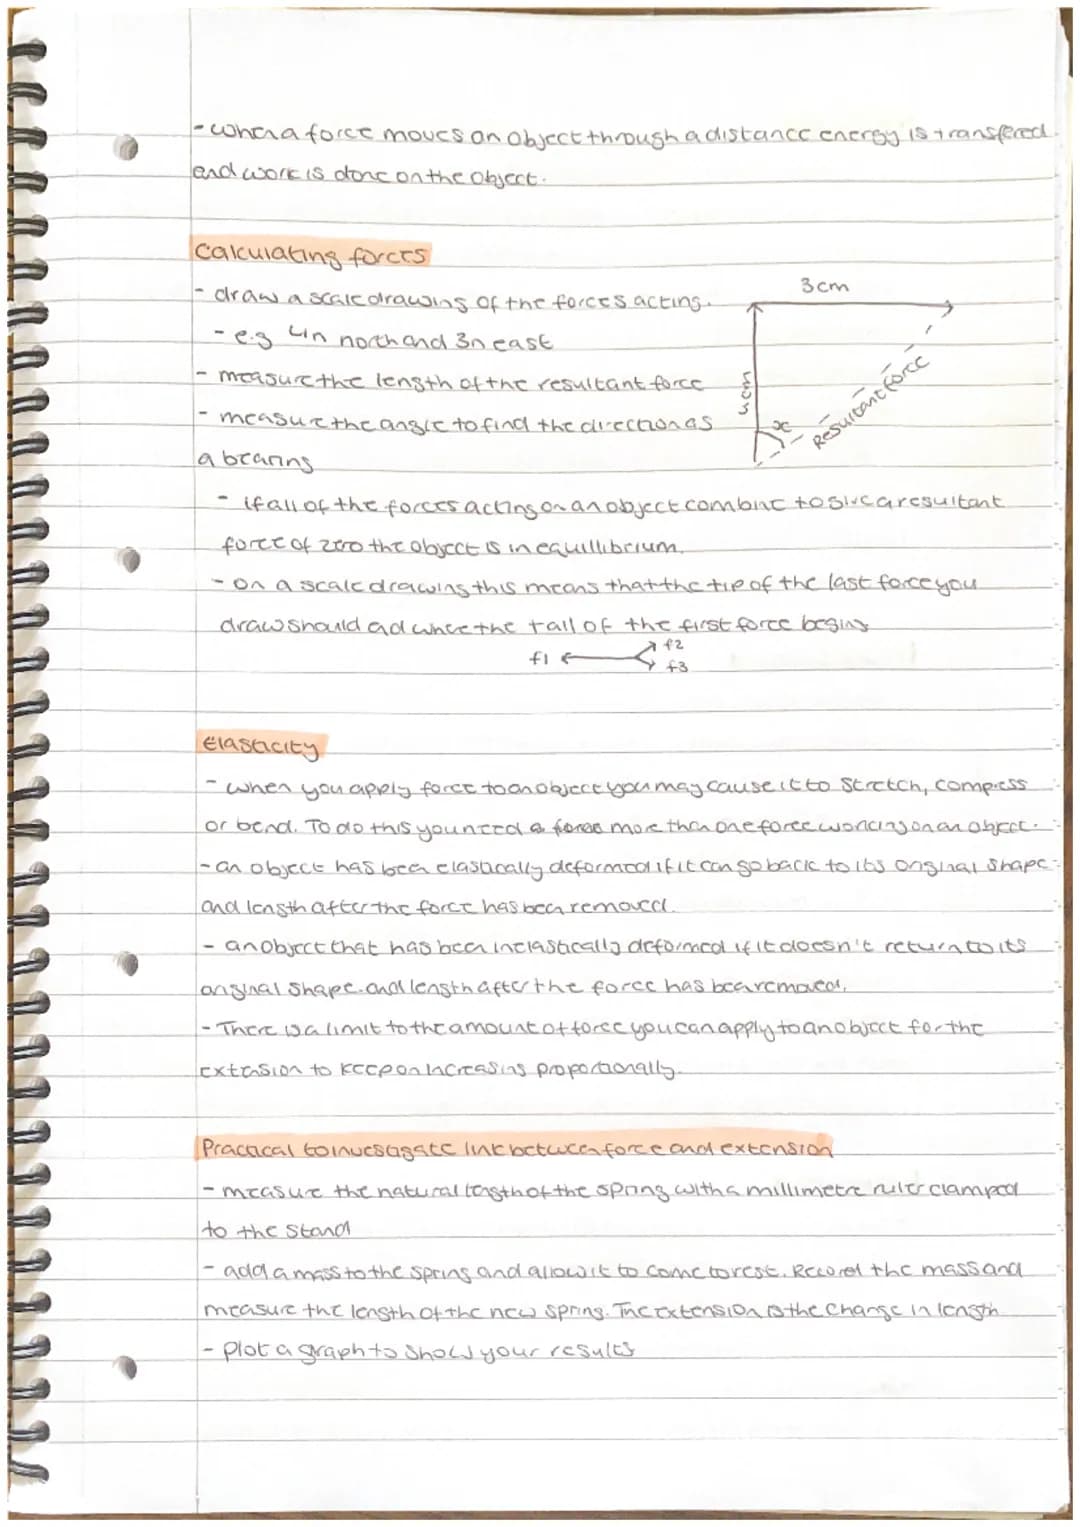 - when a force moves an object through a distance energy is transfered
and work is done on the object.
calculating forces
- draw a scale drawing of the forces acting.
3cm
- e.g 4n north and 3n east
- measure the length of the resultant force
- measure the angle to find the direction as
a bearing
x
Resultant force
- if all of the forces acting on an object combine to give a resultant
force of zero the object is in equillibrium.
- on a scale drawing this means that the tip of the last force you
draw should end where the tail of the first force begins
f1
f2
f3
Elasticity
- when you apply force to an object you may cause it to stretch, compress
or bend. To do this you need a more than one force working on an object.
- an object has been elastically deformed if it can go back to its original shape
and length after the force has been removed.
- an object that has been inelastically deformed if it doesn't return to its
original shape and length after the force has been removed.
- There is a limit to the amount of force you can apply to an object for the
extension to keep on increasing proportionally.
Practical to investigate link between force and extension
- measure the natural length of the spring with a millimetre ruler clamped
to the stand
- add a mass to the spring and allow it to come to rest. Record the mass and
measure the length of the new spring. The extension is the change in length
- plot a graph to show your results